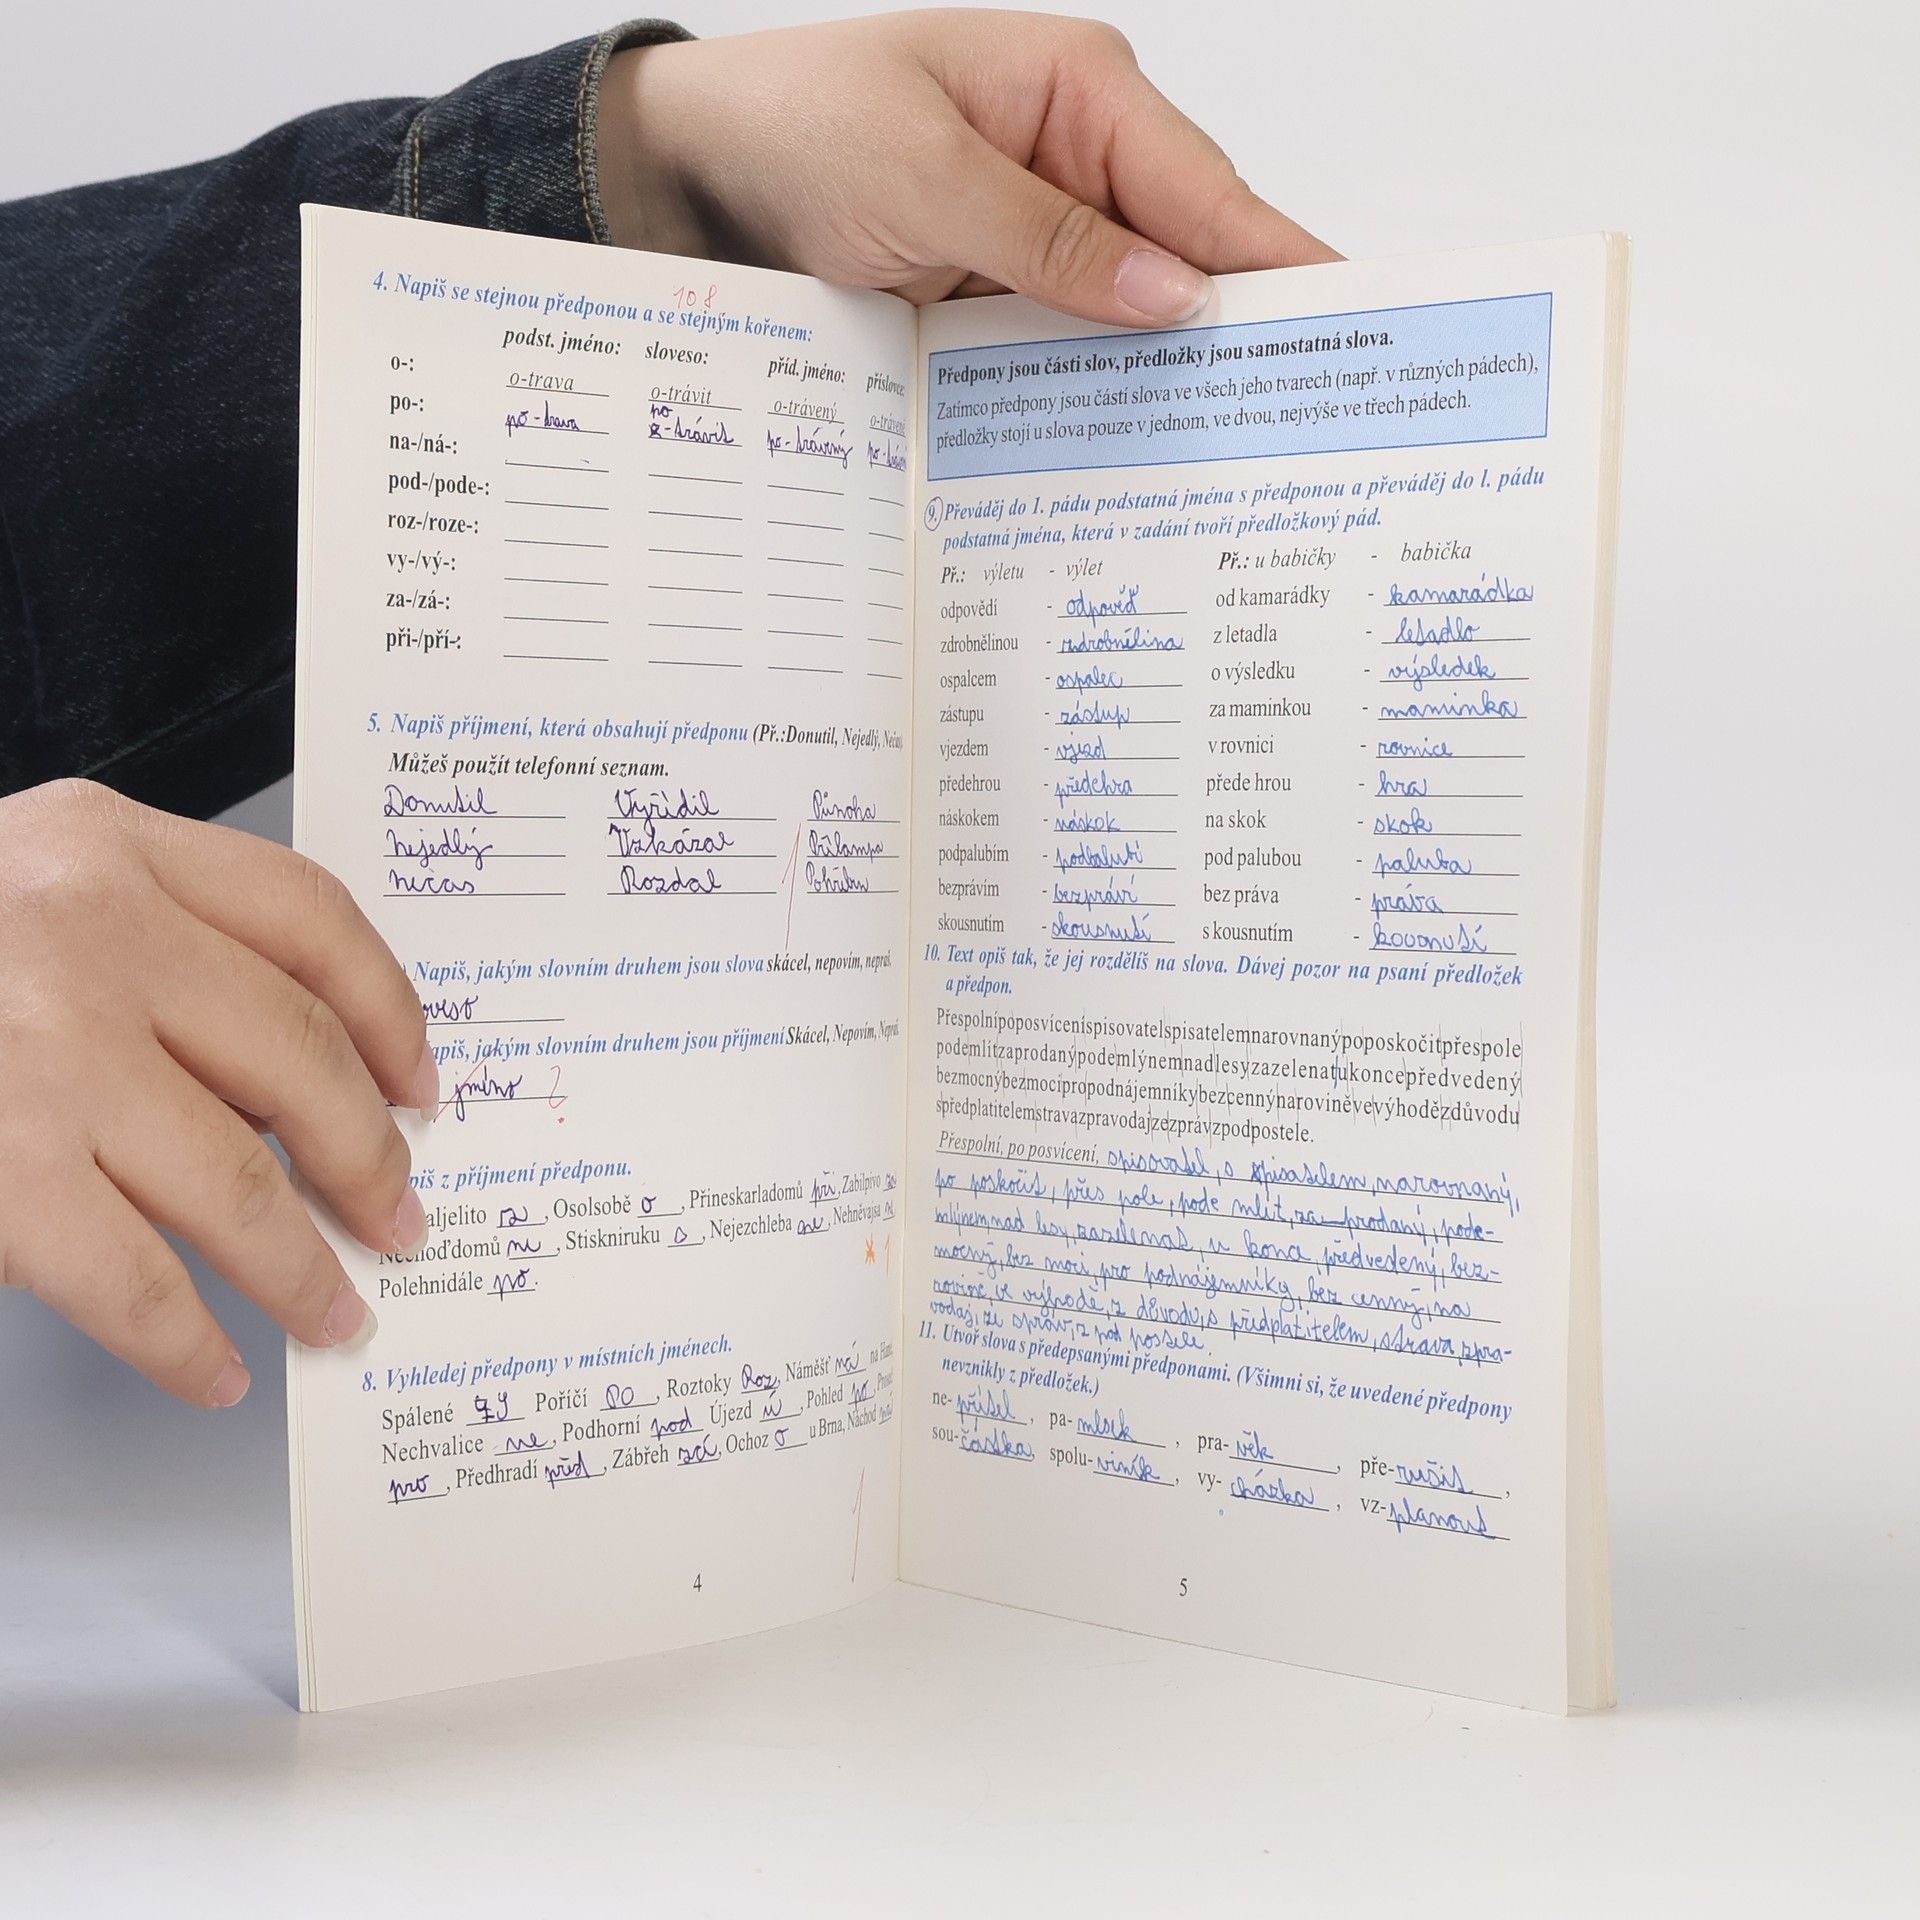 4. Napiš se stejnou předponou a se stejným kořenem:
108
podst. jméno: sloveso: příd. jméno: příslovce:
o-: o-trava o-trávit o-trávený o-tráveně
po-: po-trava po-trávit po-trávený
na-/ná-:
pod-/pode-:
roz-/roze-:
vy-/vý-:
za-/zá-:
při-/pří-:
5. Napiš příjmení, která obsahují předponu (Př.:Donutil, Nejedlý, Nečas).
Můžeš použít telefonní seznam.
Donutil Vyřídil Půnoha
Nejedlý Vzkázal Přílampa
Nečas Rozdal
Napiš, jakým slovním druhem jsou slova skácel, nepovím, nepraš.
apiš, jakým slovním druhem jsou příjmení Skácel, Nepovím, Nepraš.
jméno ?
piš z příjmení předponu.
aljelito , Osolsobě o , Přineskarladomů při , Zabilpivo za
domů ne , Stiskniruku s , Nejezchleba ne , Nehněvajsa
Polehnidále po .
* 1
8. Vyhledej předpony v místních jménech.
Spálené Poříčí PO , Roztoky Roz , Náměšť ná na Hané
Nechvalice ne , Podhorní pod Újezd ú , Pohled po ,
pro , Předhradí před , Zábřeh zá , Ochoz o u Brna, Náchod
4
Předpony jsou části slov, předložky jsou samostatná slova.
Zatímco předpony jsou částí slova ve všech jeho tvarech (např. v různých pádech),
předložky stojí u slova pouze v jednom, ve dvou, nejvýše ve třech pádech.
9. Převáděj do 1. pádu podstatná jména s předponou a převáděj do l. pádu
podstatná jména, která v zadání tvoří předložkový pád.
Př.: výletu - výlet Př.: u babičky - babička
odpovědí - odpověď od kamarádky - kamarádka
zdrobnělinou - zdrobnělina z letadla - letadlo
ospalcem - ospalec o výsledku - výsledek
zástupu - zástup za maminkou - maminka
vjezdem - vjezd v rovnici - rovnice
předehrou - předehra přede hrou - hra
náskokem - náskok na skok - skok
podpalubím - podpalubí pod palubou - paluba
bezprávím - bezpráví bez práva - práva
skousnutím - skousnutí s kousnutím - kousnutí
10. Text opiš tak, že jej rozdělíš na slova. Dávej pozor na psaní předložek
a předpon.
Přespolnípoposvícíspisovatelspisatelemnarovnanýpoposkočitpřespole
podemlítzaprodanýpodemlýnemnadlesyzazelenatukoncepředvedený
bezmocnýbezmocipropodnájemníkybezcennýnarovinĕvevýhodĕzdůvodu
spředplatitelemstravazpravodajzezprávzpodpostele.
Přespolní, po posvícení, spisovatel, s pisatelem, narovnaný,
po poskočit, přes pole, pode mlít, za prodaný, pode-
mlýnem, nad lesy, zazelenat, u konce, předvedený, bez-
mocný, bez moci, pro podnájemníky, bez cenný, na
rovině, ve výhodě, z důvodu, s předplatitelem, strava, zpra-
vodaj, ze správ, z pod postele.
11. Utvoř slova s předepsanými předponami. (Všimni si, že uvedené předpony
nevznikly z předložek.)
ne-přítel , pa-mlsek , pra-věk , pře-rušit ,
sou-částka, spolu-viník , vy-cházka , vz-planout
5